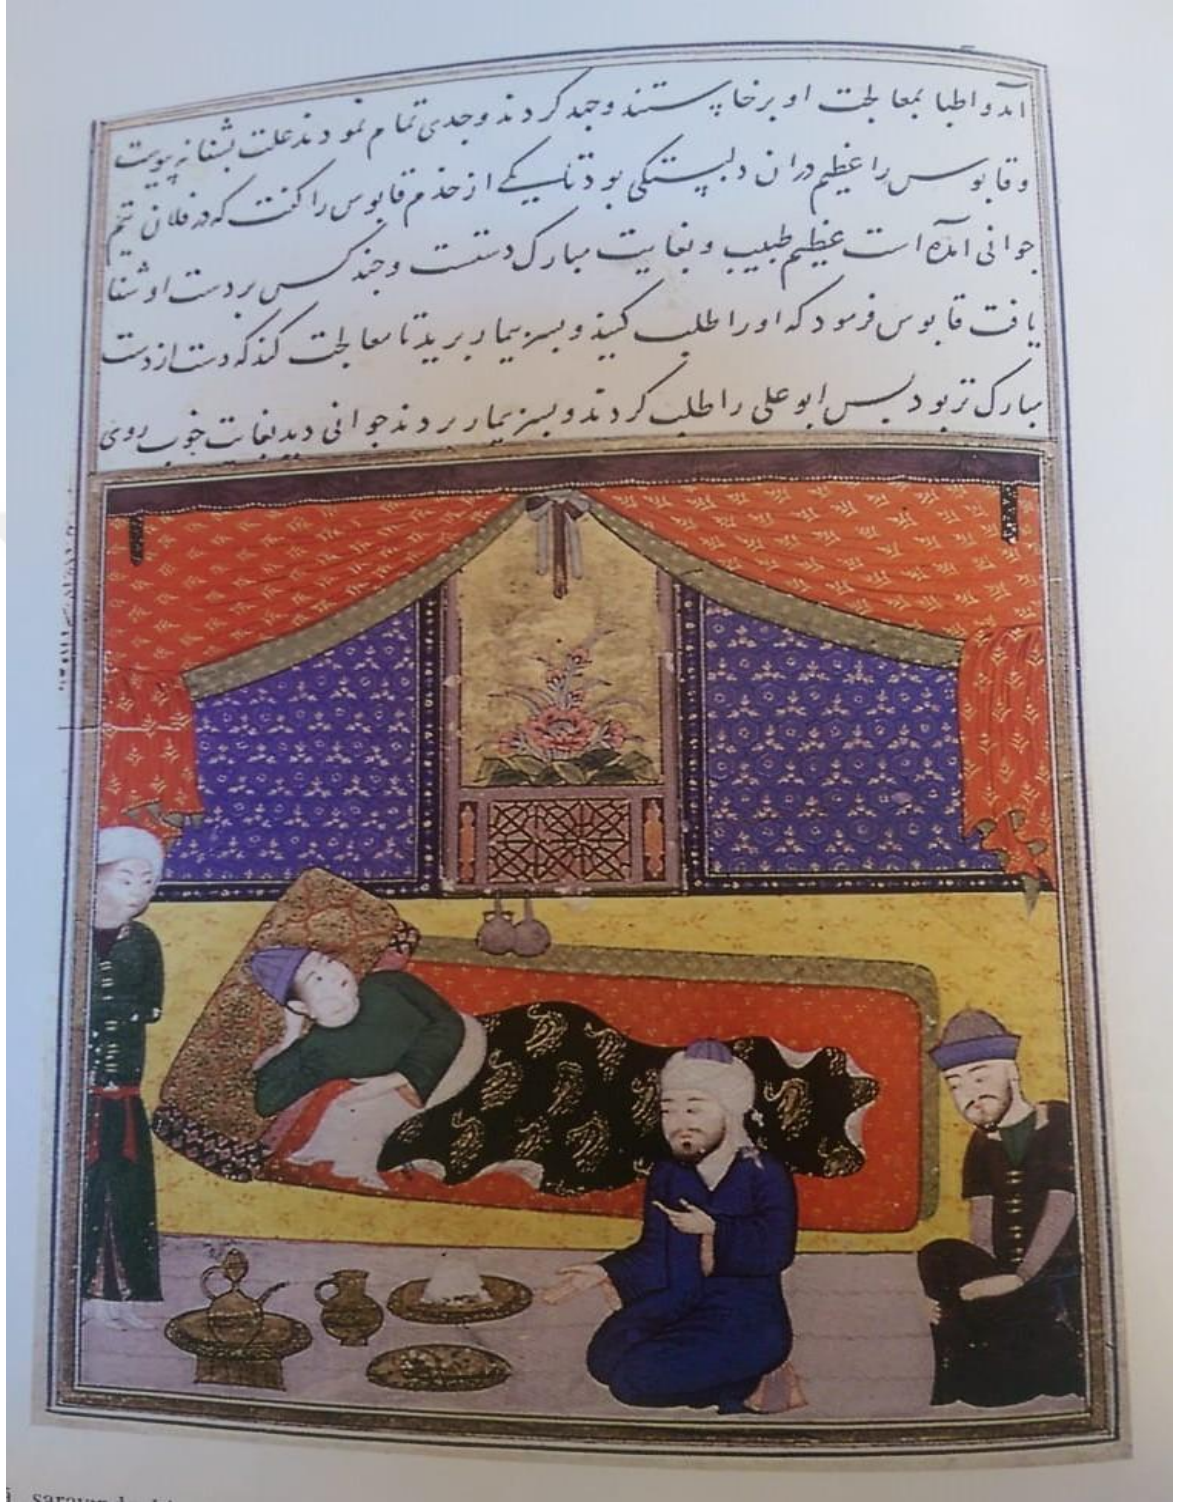 آمد و اطبا بمعالجت او برخاستند و جهد کردند و جدی تمام نمودند علت بشفا نه پیوست
و قابوس را عظیم در آن دلبستگی بود تا یکی از خدم قابوس را گفت که در فلان تیم
جوانی آمده است عظیم طبیب و بغایت مبارک دستست و چند کس بر دست او شفا
یافت قابوس فرمود که او را طلب کنید و بسر بیمار برید تا معالجت کند که دست از دست
مبارک تر بود بس ابو علی را طلب کردند و بسر بیمار بردند جوانی دید بغایت خوب روی